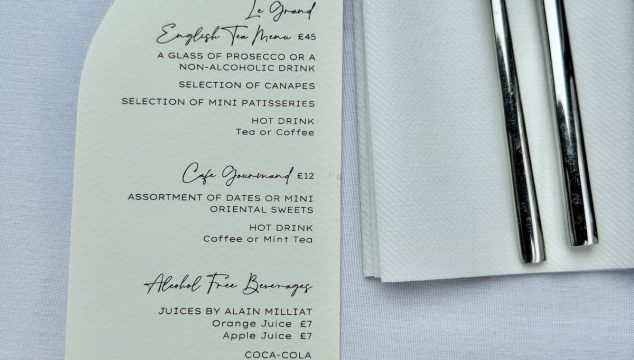 Le Grand
English Tea Menu £45
A GLASS OF PROSECCO OR A
NON-ALCOHOLIC DRINK
SELECTION OF CANAPES
SELECTION OF MINI PATISSERIES
HOT DRINK
Tea or Coffee
Cafe Gourmand £12
ASSORTMENT OF DATES OR MINI
ORIENTAL SWEETS
HOT DRINK
Coffee or Mint Tea
Alcohol Free Beverages
JUICES BY ALAIN MILLIAT
Orange Juice £7
Apple Juice £7
COCA-COLA